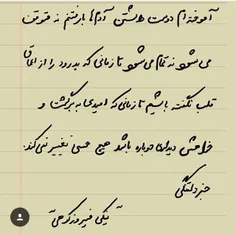 آموخته‌ام دوست داشتن آدم‌ها با رفتنم نه متوقف
می شود نه تمام می شود تا زمانی که بدرود را از اعماق
قلب نگفته باشیم تا زمانی که امیدی به برگشت و
خواهش دیدار دوباره باشد هیچ حسی تغییر نمی کند.
خبر دلتنگی
نیکی فیروزکوهی